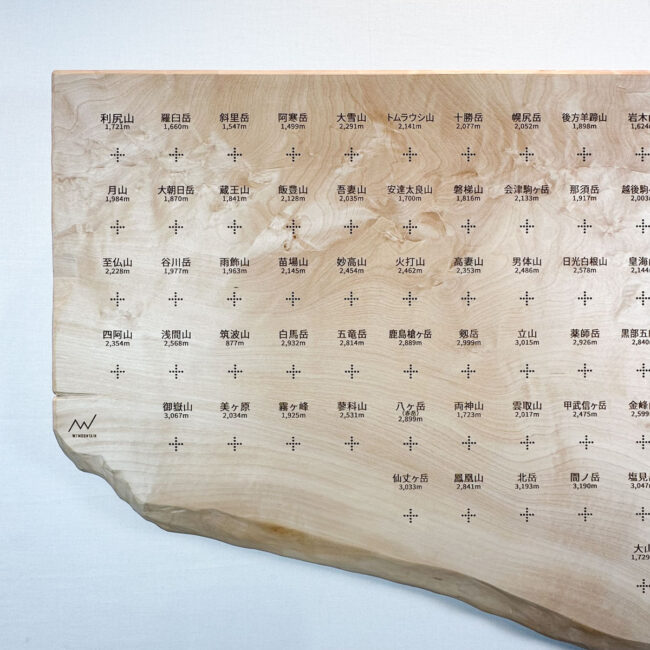 利尻山 羅臼岳 斜里岳 阿寒岳 大雪山 トムラウシ山 十勝岳 幌尻岳 後方羊蹄山 岩木
1,721m 1,660m 1,547m 1,499m 2,291m 2,141m 2,077m 2,052m 1,898m 1,624
月山 大朝日岳 蔵王山 飯豊山 吾妻山 安達太良山 磐梯山 会津駒ヶ岳 那須岳 越後駒
1,984m 1,870m 1,841m 2,128m 2,035m 1,700m 1,816m 2,133m 1,917m 2,003
至仏山 谷川岳 雨飾山 苗場山 妙高山 火打山 高妻山 男体山 日光白根山 皇海
2,228m 1,977m 1,963m 2,145m 2,454m 2,462m 2,353m 2,486m 2,578m 2,144
四阿山 浅間山 筑波山 白馬岳 五竜岳 鹿島槍ヶ岳 剱岳 立山 薬師岳 黒部五
2,354m 2,568m 877m 2,932m 2,814m 2,889m 2,999m 3,015m 2,926m 2,840
御嶽山 美ヶ原 霧ヶ峰 蓼科山 八ヶ岳 両神山 雲取山 甲武信ヶ岳 金峰
(赤岳)
3,067m 2,034m 1,925m 2,531m 2,899m 1,723m 2,017m 2,475m 2,599
仙丈ヶ岳 鳳凰山 北岳 間ノ岳 塩見
3,033m 2,841m 3,193m 3,190m 3,047
大山
1,729